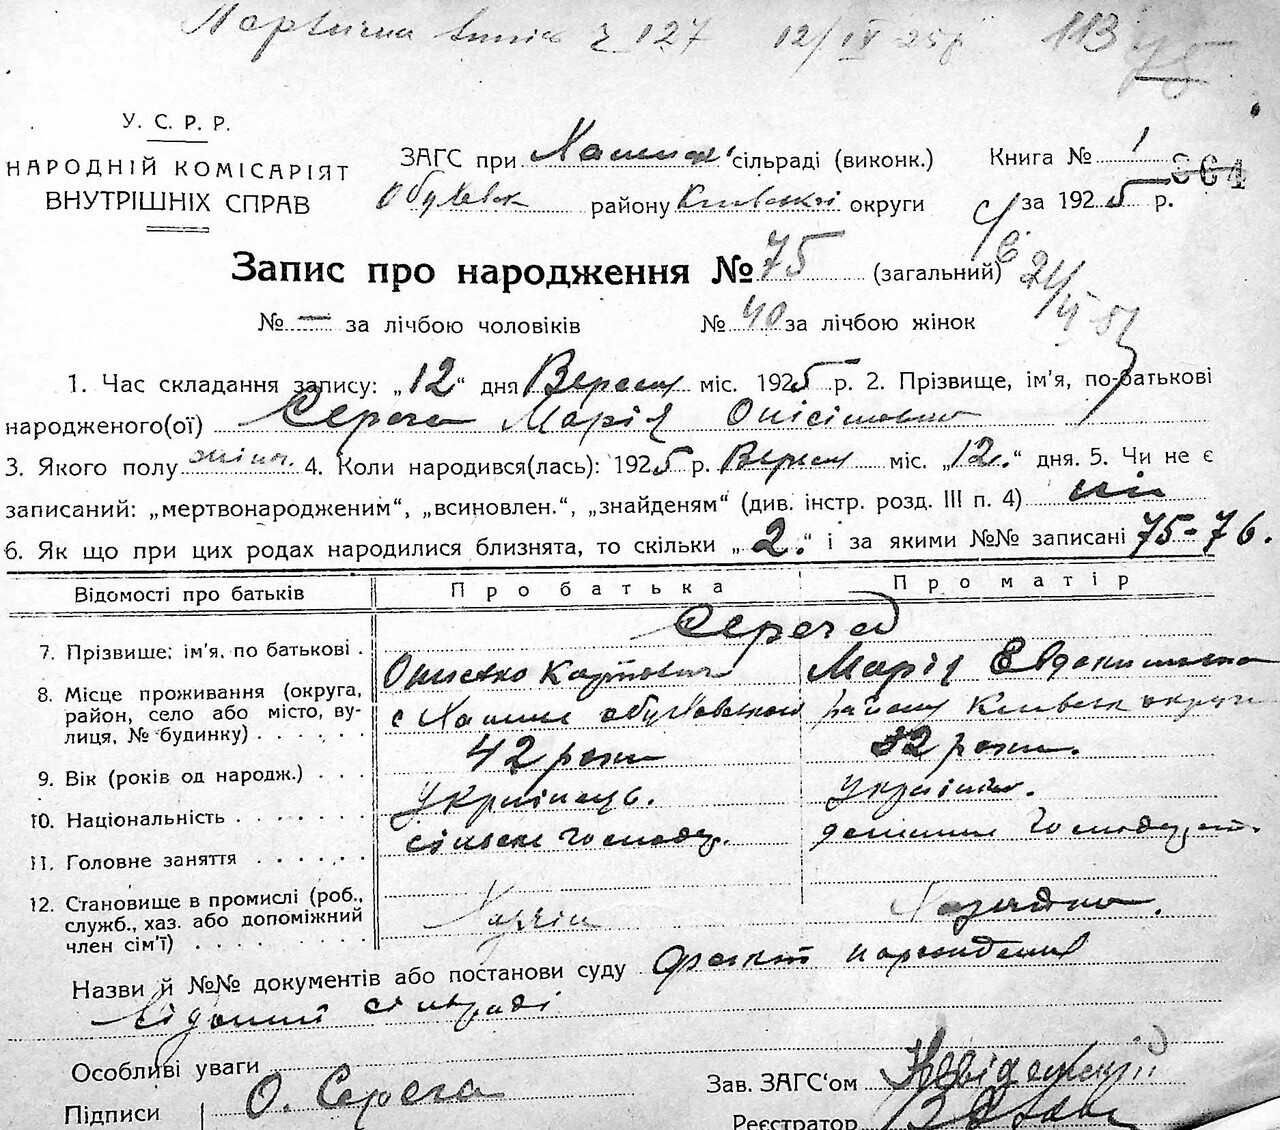 127 12/IV 25р 113
У. С. Р. Р.
НАРОДНІЙ КОМІСАРІЯТ
ВНУТРІШНІХ СПРАВ
ЗАГС при сільраді (виконк.)
району Київської округи
Книга № 1
364
за 1925 р.
Запис про народження № 75 (загальний)
№ — за лічбою чоловіків № 40 за лічбою жінок
1. Час складання запису: „12“ дня Вересня міс. 1925 р. 2. Прізвище, ім'я, по-батькові
народженого(ої) Серега Марія Онісімовна
3. Якого полу жіноч. 4. Коли народився(лась): 1925 р. Вересня міс. „12.“ дня. 5. Чи не є
записаний: „мертвонародженим“, „всиновлен.“, „знайденям“ (див. інстр. розд. III п. 4) ні
6. Як що при цих родах народилися близнята, то скільки „2.“ і за якими №№ записані 75-76.
Відомості про батьків Про батька Про матір
7. Прізвище; ім'я, по батькові . Серега
Марія Евдокимовна
8. Місце проживання (округа,
район, село або місто, ву-
лиця, № будинку) . . . . . .
району Київськ округи
9. Вік (років од народж.) . . . 42 роки 32 роки.
10. Національність . . . . . . . Українець. Українка.
11. Головне заняття . . . . . . сільське господ. домашнє господарст.
12. Становище в промислі (роб.,
служб., хаз. або допоміжний
член сім'ї) . . . . . . . . . Хазяїн Хазяйка.
Назви й №№ документів або постанови суду факт народження
відомий сільраді
Особливі уваги
Підписи О. Серега
Зав. ЗАГС'ом
Реєстратор